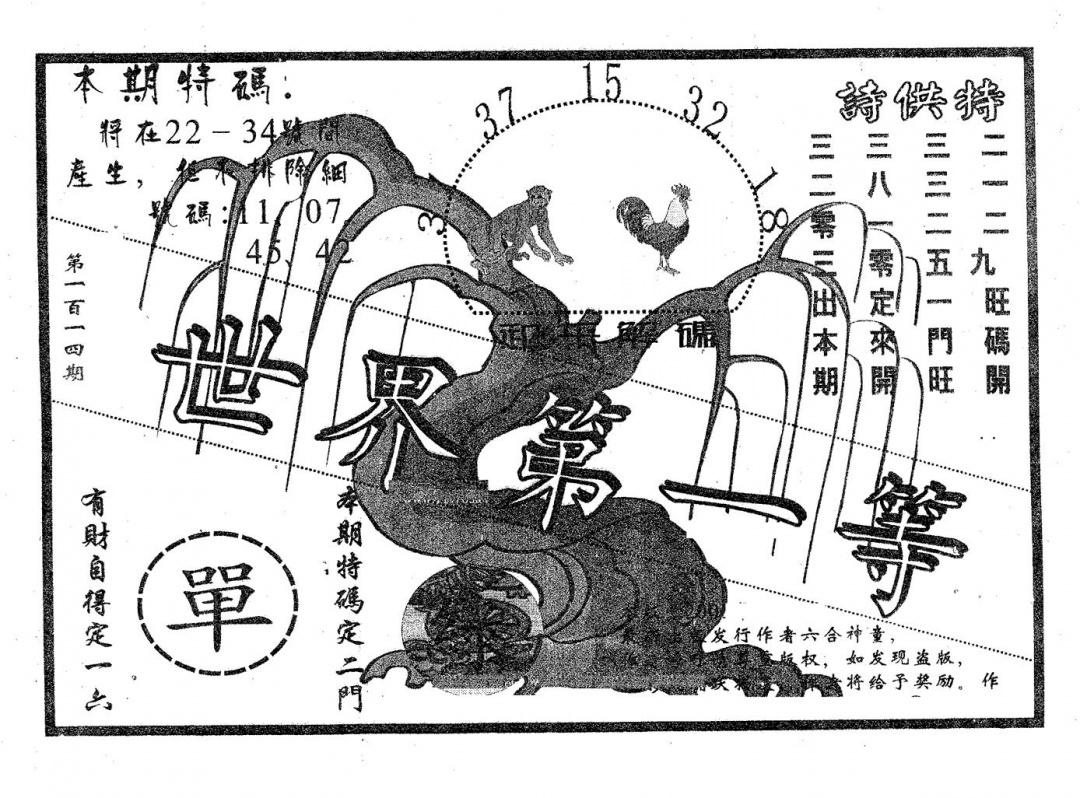 本期特碼：
將在22－34號間
產生，但不排除細
號碼：11、07、
45、42
37
15
32
1
8
特供詩
二一二九旺碼開
三三二五一門旺
三八一零定來開
三二零三出本期
第一百一四期
世界第一等
解碼
本期特碼定二門
單
有財自得定一六
发行作者六合神童，
版权，如发现盗版，
将给予奖励。作